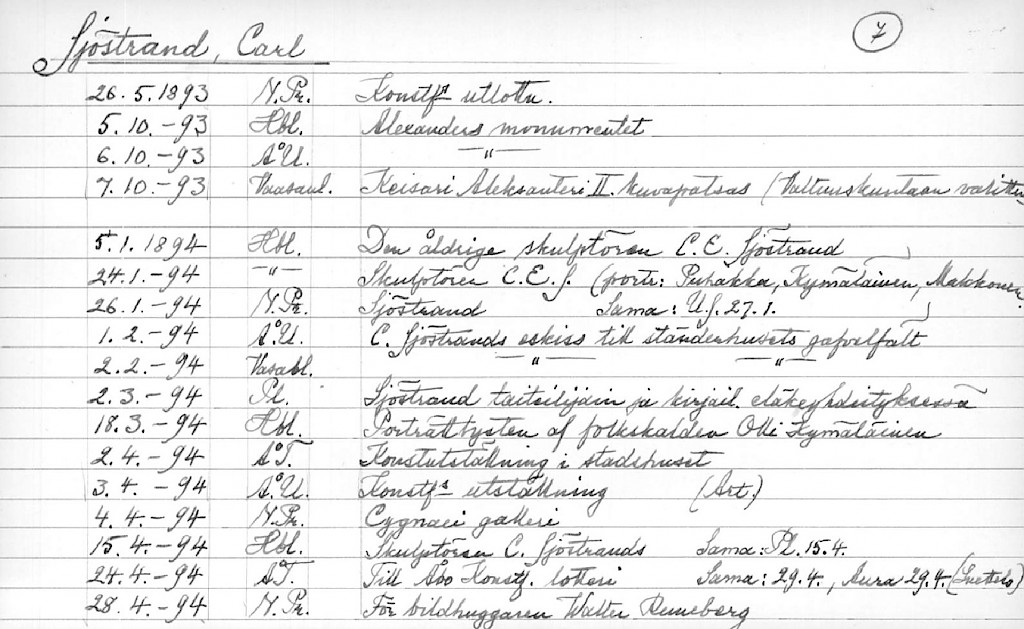 Sjöstrand, Carl 7
26.5.1893 N.Pr. Konstfs utlottn.
5.10.-93 Hbl. Alexanders monumentet
6.10.-93 Å.U. -"-
7.10.-93 Vaasaul. Keisari Aleksanteri II. kuvapatsas (Valtuuskuntaan valittu
5.1.1894 Hbl. Den åldrige skulptören C. E. Sjöstrand
24.1.-94 -"- Skulptören C. E. S. (portr: Puhakka, Kymäläinen, Makkonen
26.1.-94 N.Pr. Sjöstrand Sama: U.S. 27.1.
1.2.-94 Å.U. C. Sjöstrands eskiss till ständerhusets gafvelfält
2.2.-94 Vasabl. -"- -"-
2.3.-94 Pl. Sjöstrand taiteilijain ja kirjail. eläkeyhdistyksessä
18.3.-94 Hbl. Porträttbysten af folkskalden Olli Kymäläinen
2.4.-94 Å.T. Konstutställning i stadshuset
3.4.-94 Å.U. Konstfs utställning (Art.)
4.4.-94 N.Pr. Cygnaei galleri
15.4.-94 Hbl. Skulptören C. Sjöstrands Sama: Pl. 15.4.
24.4.-94 Å.T. Till Åbo Konstf. lotteri Sama: 29.4., Aura 29.4.
28.4.-94 N.Pr. För bildhuggaren Walter Runeberg